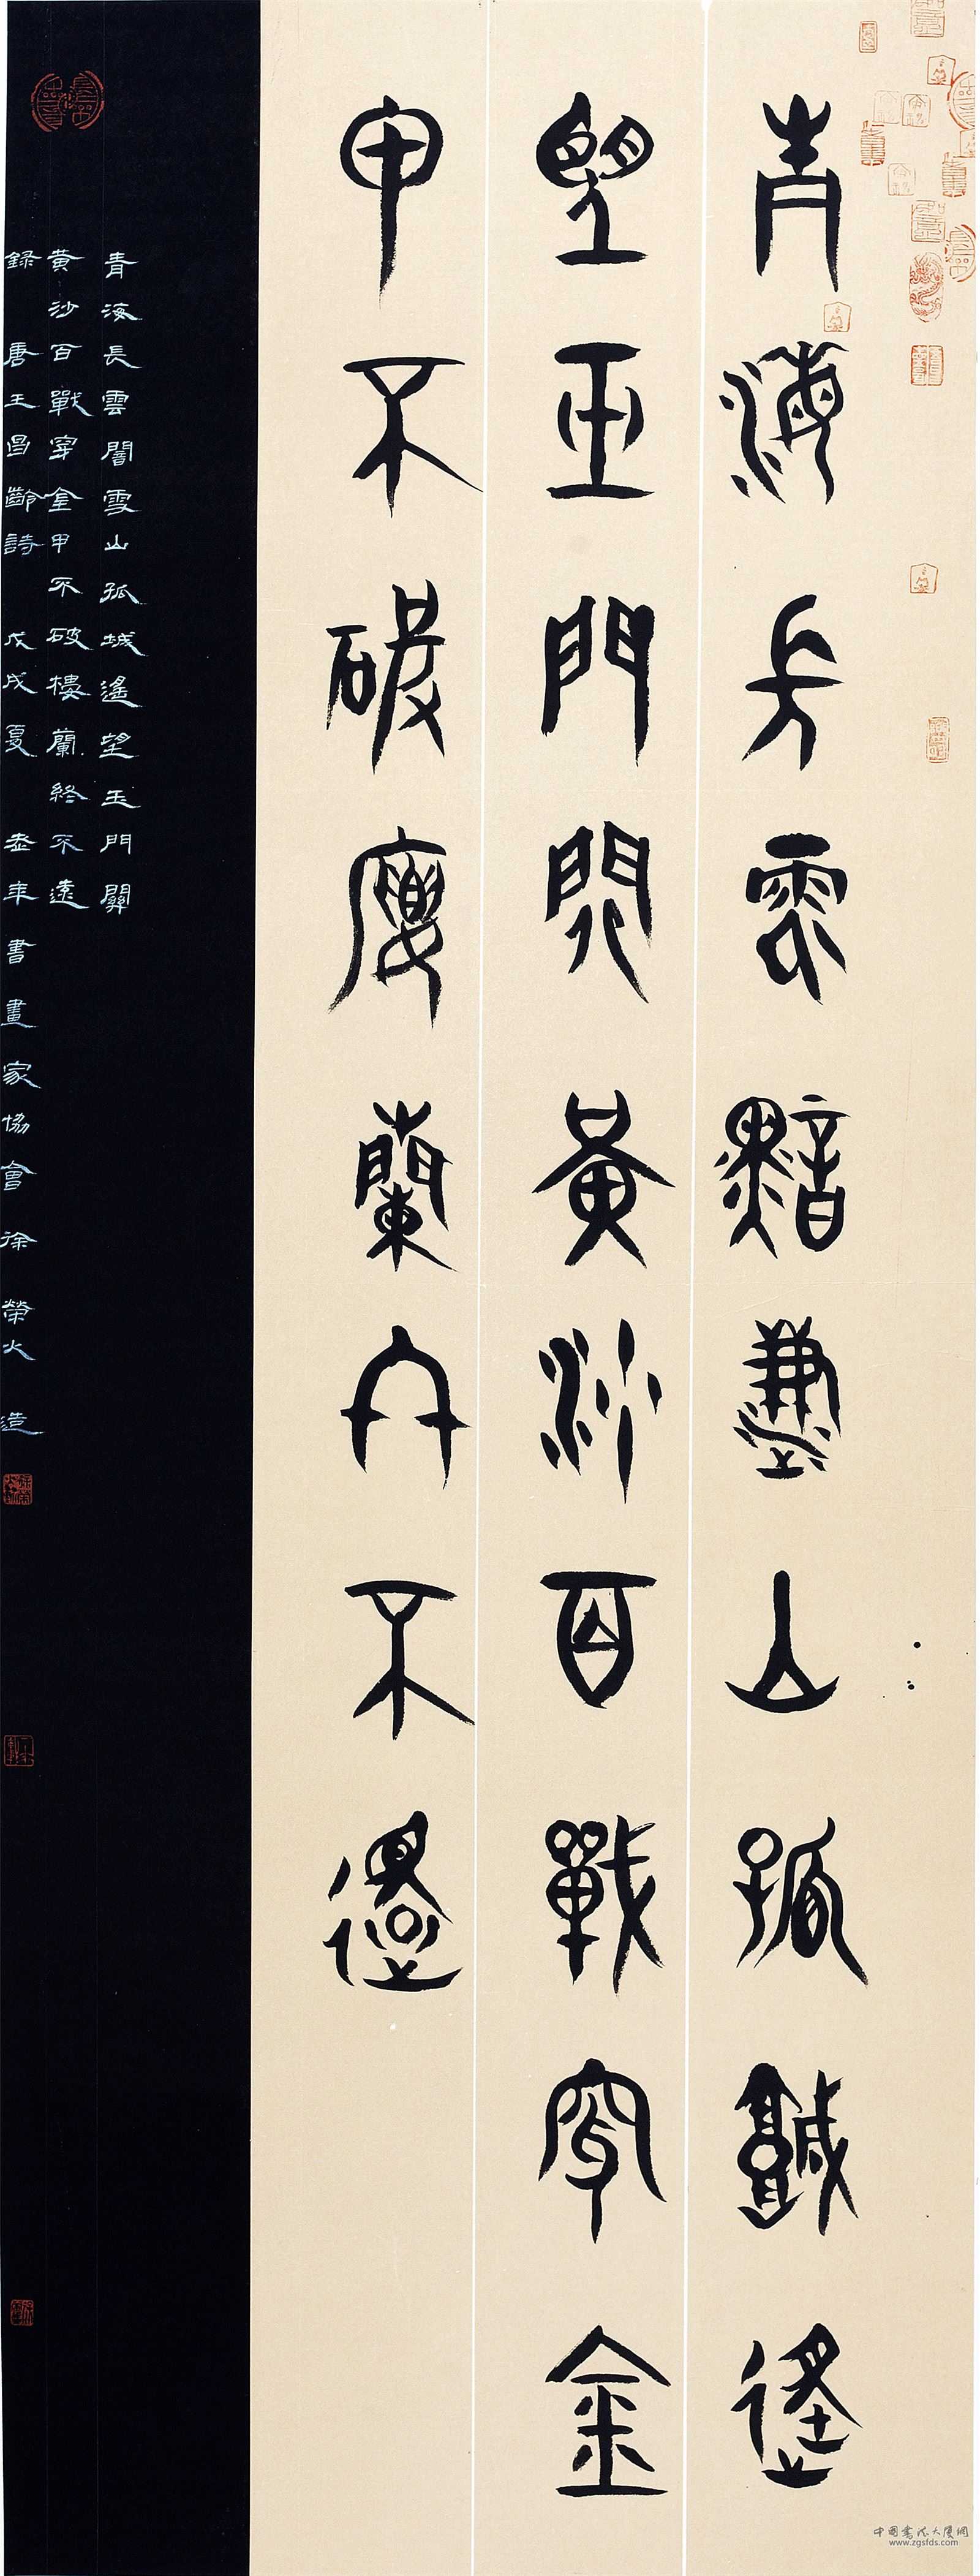 青海長雲黯雪山孤城遙
望玉門關黃沙百戰穿金
甲不破樓蘭終不還
青海長雲闇雪山孤城遙望玉門關
黃沙百戰穿金甲不破樓蘭終不遠
錄 唐王昌齡詩 戊戌夏 老年書畫家協會 徐榮火 造
中國書法大廈網
www.zgsfds.com